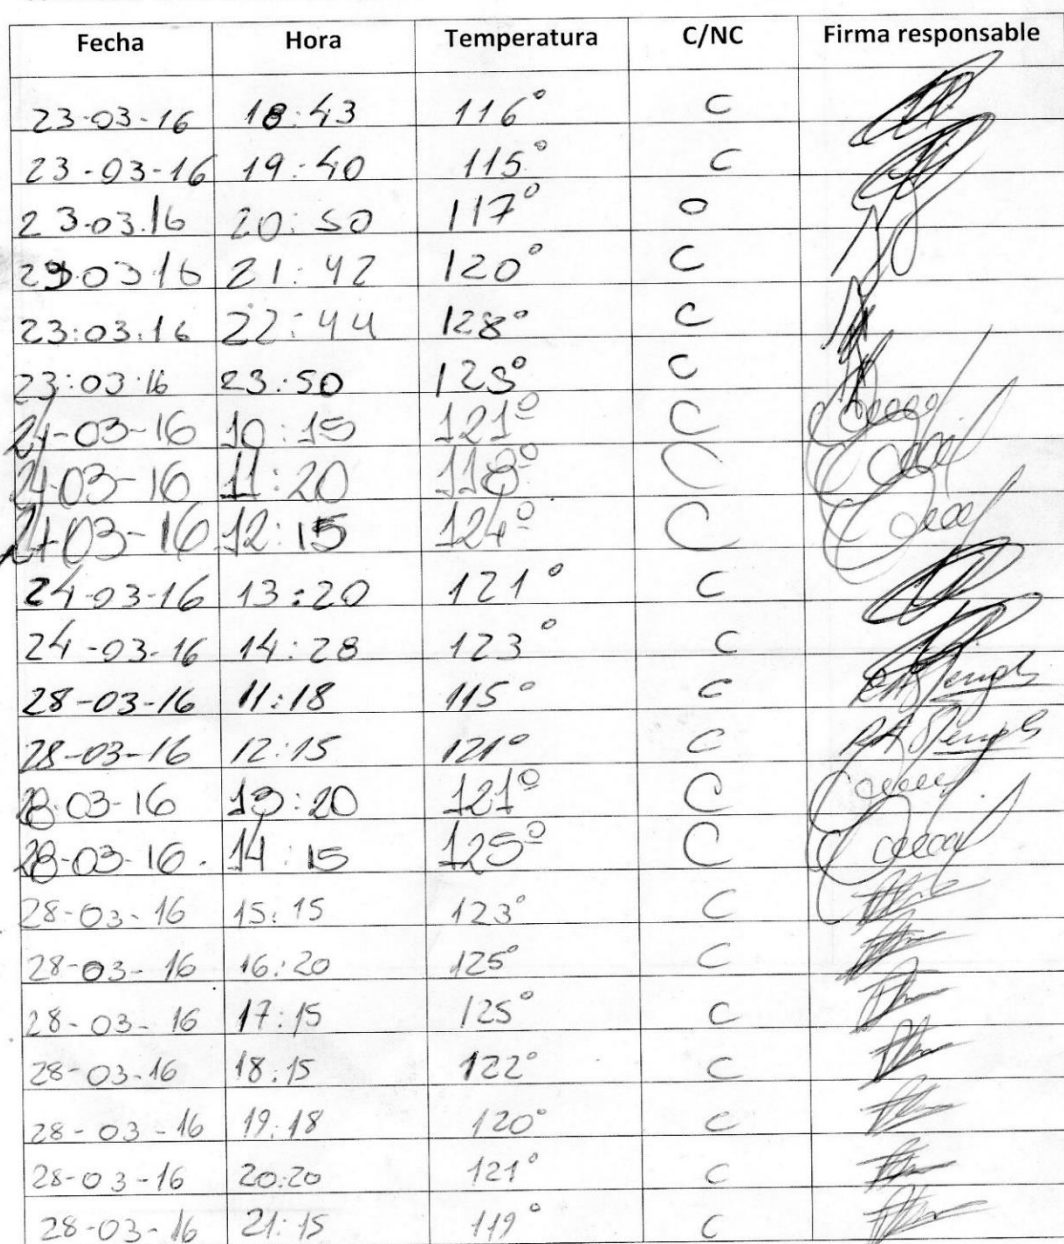 Fecha Hora Temperatura C/NC Firma responsable
23-03-16 18:43 116° C
23-03-16 19:40 115° C
23.03.16 20:50 117° C
23.03.16 21:42 120° C
23:03.16 22:44 128° C
23:03:16 23:50 123° C
24-03-16 10:15 121º C
24-03-16 11:20 118º C
24-03-16 12:15 124º C
24-03-16 13:20 121° C
24-03-16 14:28 123° C
28-03-16 11:18 115° C
28-03-16 12:15 121° C
28-03-16 13:20 121º C
28-03-16. 14:15 125º C
28-03-16 15:15 123° C
28-03-16 16:20 125° C
28-03-16 17:15 125° C
28-03-16 18:15 122° C
28-03-16 19:18 120° C
28-03-16 20:20 121° C
28-03-16 21:15 119° C